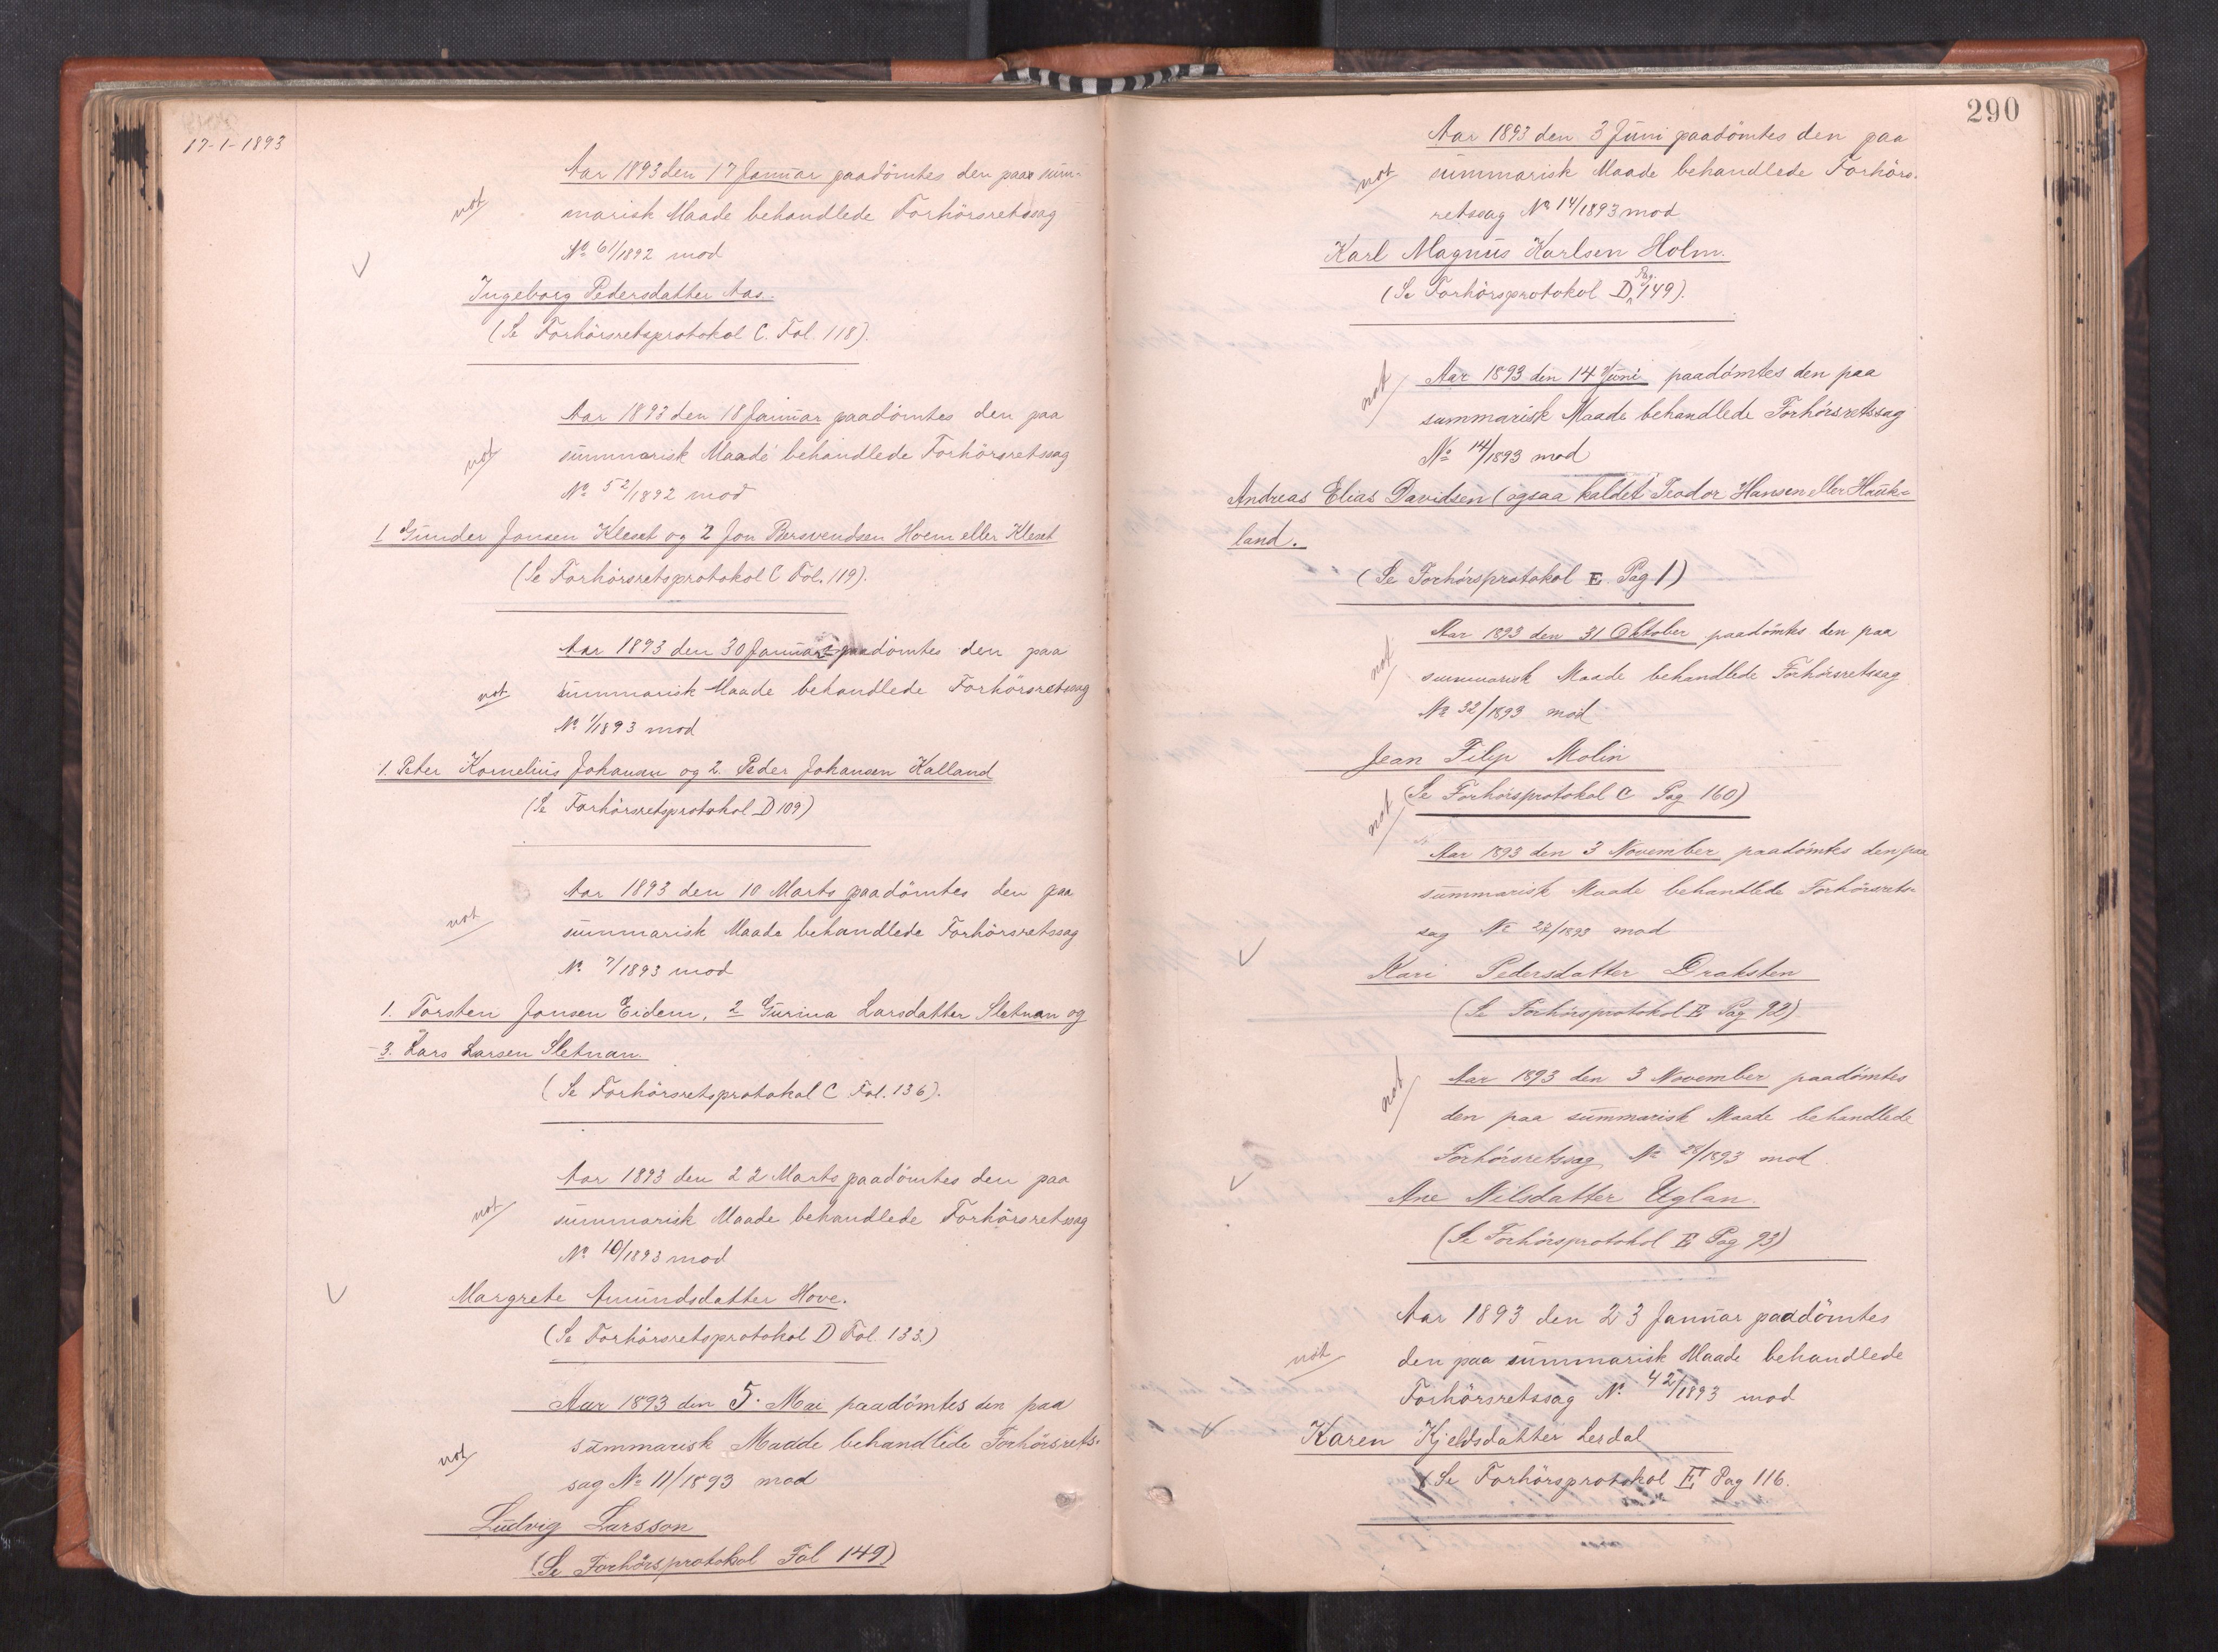 17-1-1893
Aar 1893 den 17 Januar paadömtes den paa sum-
not
marisk Maade behandlede Forhörsretssag
No 61/1892 mod
Ingeborg Pedersdatter Aas.
(Se Forhörsretsprotokol C. Fol. 118).
Aar 1893 den 18 Januar paadömtes den paa
not
summarisk Maade behandlede Forhörsretssag
No 52/1892 mod
1 Gunder Jonsen Kleset og 2 Jon Bersvendsen Hoem eller Kleset
(Se Forhörsretsprotokol C Fol. 119).
Aar 1893 den 30 Januar paadömtes den paa
not
summarisk Maade behandlede Forhörsretssag
No 1/1893 mod
1. Peter Kornelius Johansen og 2. Peder Johansen Kalland
(Se Forhörsretsprotokol D 109)
Aar 1893 den 10 Marts paadömtes den paa
not
summarisk Maade behandlede Forhörsretssag
No 7/1893 mod
1. Torsten Jonsen Eidem, 2 Gurina Larsdatter Sletnan og
3. Lars Larsen Sletnan.
(Se Forhörsretsprotokol C Fol. 136).
Aar 1893 den 22 Marts paadömtes den paa
not
summarisk Maade behandlede Forhörsretssag
No 10/1893 mod
Margrete Amundsdatter Hove.
(Se Forhörsretsprotokol D Fol. 133.)
Aar 1893 den 5. Mai paadömtes den paa
summarisk Maade behandlede Forhörsrets-
not
sag No 11/1893 mod
Ludvig Larsson
(Se Forhörsprotokol Fol 149)
290
Aar 1893 den 3 Juni paadömtes den paa
not
summarisk Maade behandlede Forhörs-
retssag No 14/1893 mod
Karl Magnus Karlsen Holm.
(Se Forhörsprotokol D Pag. 149).
not
Aar 1893 den 14 Juni paadömtes den paa
summarisk Maade behandlede Forhörsretssag
No 14/1893 mod
Andreas Elias Davidsen (ogsaa kaldet Teodor Hansen eller Hauk-
land.
(Se Forhörsprotokol E Pag 1)
Aar 1893 den 31 Oktober paadömtes den paa
not
summarisk Maade behandlede Forhörsretssag
No 32/1893 mod
Jean Filip Molin
(Se Forhörsprotokol C Pag 160)
not
Aar 1893 den 3 November paadömtes den paa
summarisk Maade behandlede Forhörsrets-
sag No 27/1893 mod
Kari Pedersdatter Draksten
(Se Forhörsprotokol E Pag 92)
not
Aar 1893 den 3 November paadömtes
den paa summarisk Maade behandlede
Forhörsretssag No 28/1893 mod
Ane Nilsdatter Uglan.
(Se Forhörsprotokol E Pag 93)
Aar 1893 den 23 Januar paadömtes
not
den paa summarisk Maade behandlede
Forhörsretssag No 42/1893 mod
Karen Kjeldsdatter Lerdal
(Se Forhörsprotokol E Pag 116.